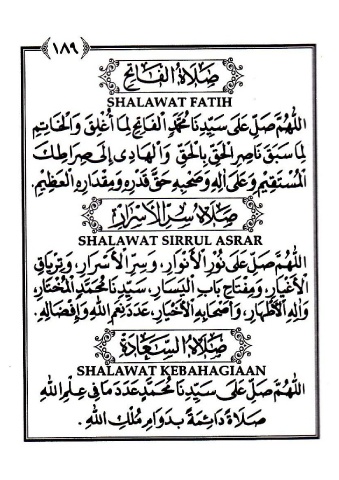 ١٨٩
صَلَاةُ الفَاتِحِ
SHALAWAT FATIH
اَللّٰهُمَّ صَلِّ عَلَى سَيِّدِنَا مُحَمَّدٍ الْفَاتِحِ لِمَا أُغْلِقَ وَالْخَاتِمِ
لِمَا سَبَقَ نَاصِرِ الْحَقِّ بِالْحَقِّ وَالْهَادِى إِلَى صِرَاطِكَ
الْمُسْتَقِيْمِ وَعَلَى آلِهِ وَصَحْبِهِ حَقَّ قَدْرِهِ وَمِقْدَارِهِ الْعَظِيْمِ.
صَلَاةُ سِرِّ الْأَسْرَارِ
SHALAWAT SIRRUL ASRAR
اَللّٰهُمَّ صَلِّ عَلَى نُوْرِ الْأَنْوَارِ، وَسِرِّ الْأَسْرَارِ، وَتِرْيَاقِ
الْأَغْيَارِ، وَمِفْتَاحِ بَابِ الْيَسَارِ، سَيِّدِنَا مُحَمَّدٍ الْمُخْتَارِ،
وَآلِهِ الْأَطْهَارِ، وَأَصْحَابِهِ الْأَخْيَارِ، عَدَدَ نِعَمِ اللّٰهِ وَإِفْضَالِهِ.
صَلَاةُ السَّعَادَةِ
SHALAWAT KEBAHAGIAAN
اَللّٰهُمَّ صَلِّ عَلَى سَيِّدِنَا مُحَمَّدٍ عَدَدَ مَا فِى عِلْمِ اللّٰهِ
صَلَاةً دَائِمَةً بِدَوَامِ مُلْكِ اللّٰهِ.